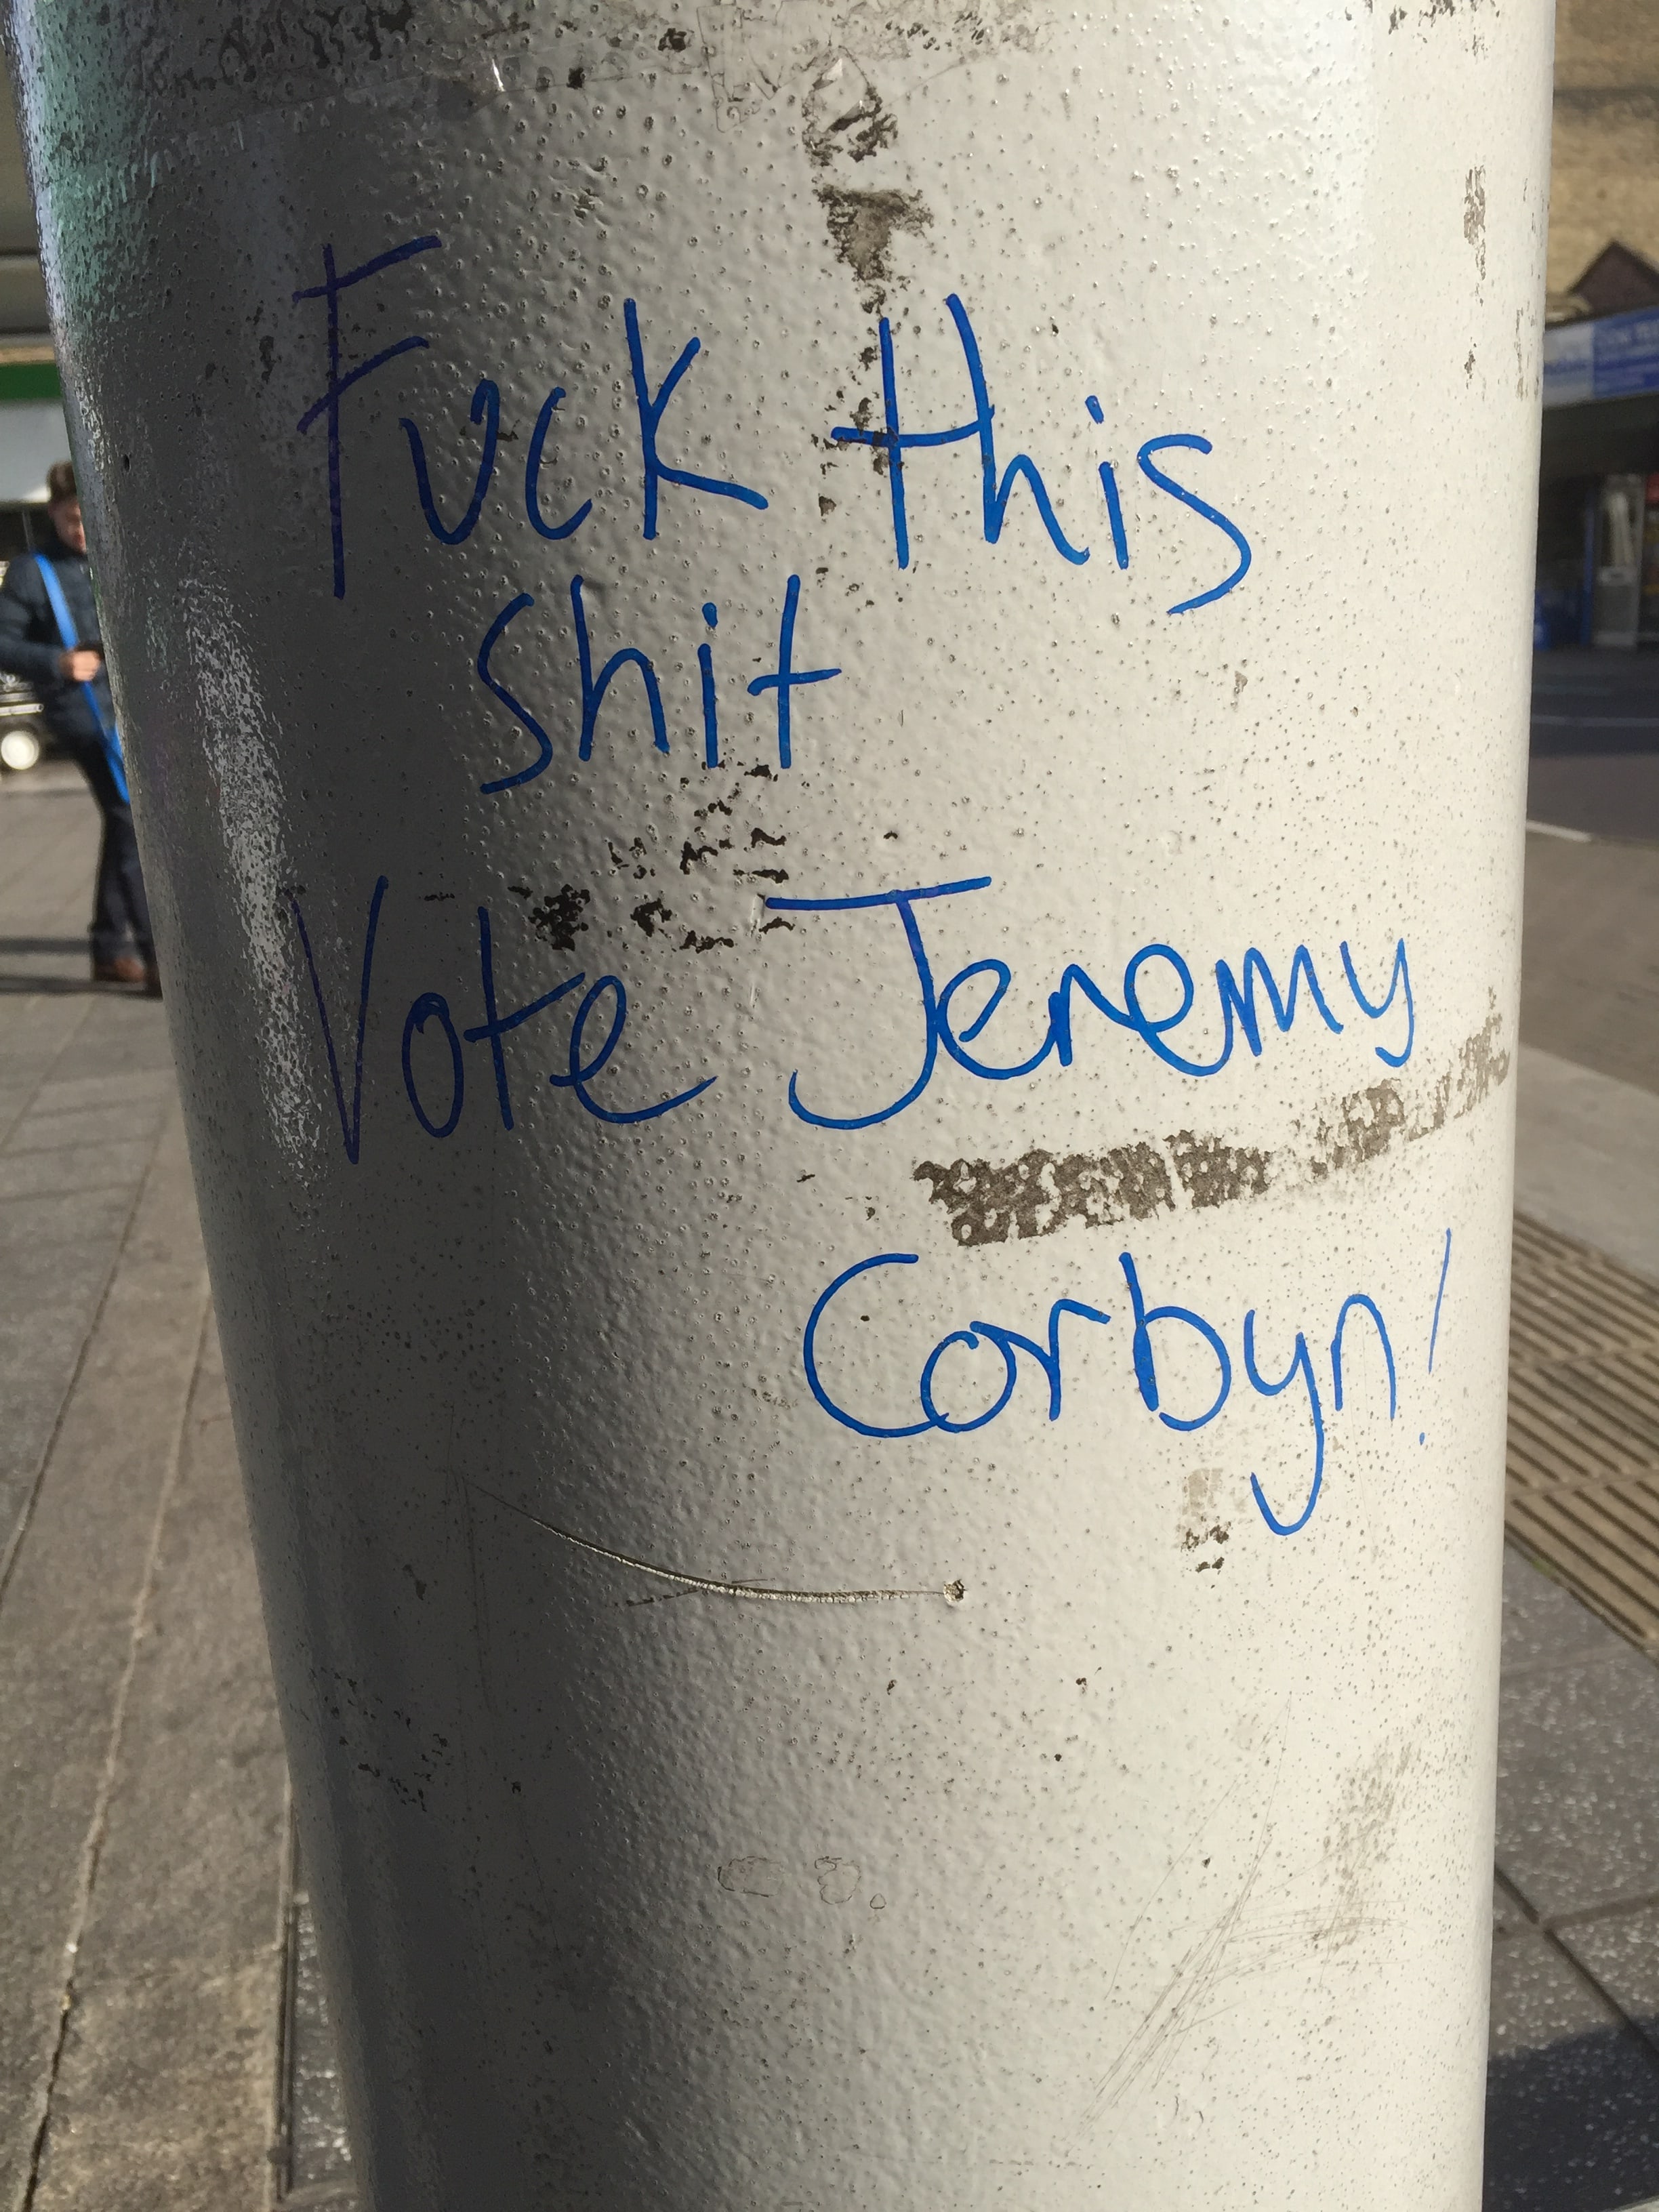 Fuck this
shit
Vote Jeremy
Corbyn!